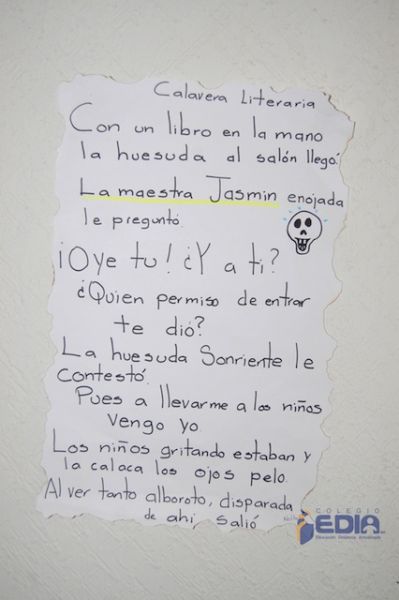 Calavera Literaria
Con un libro en la mano
la huesuda al salón llegó.
La maestra Jasmin enojada
le preguntó.
¡Oye tu! ¿Y a ti?
¿Quien permiso de entrar
te dió?
La huesuda Sonriente le
Contestó.
Pues a llevarme a los niños
vengo yo.
Los niños gritando estaban y
la calaca los ojos pelo.
Al ver tanto alboroto, disparada
de ahi salió
COLEGIO
EDIA